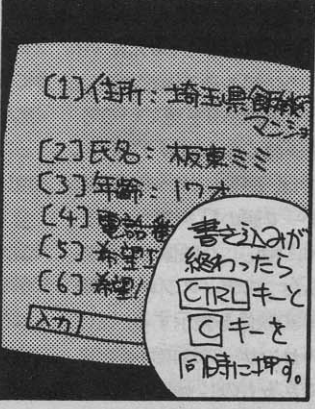 [1]住所:埼玉県飯能
マンショ
[2]氏名:板東ミミ
[3]年齢:17才
[4]電話番
[5]希望
[6]希望
入力
書き込みが
終わったら
CTRLキーと
Cキーを
同時に押す。